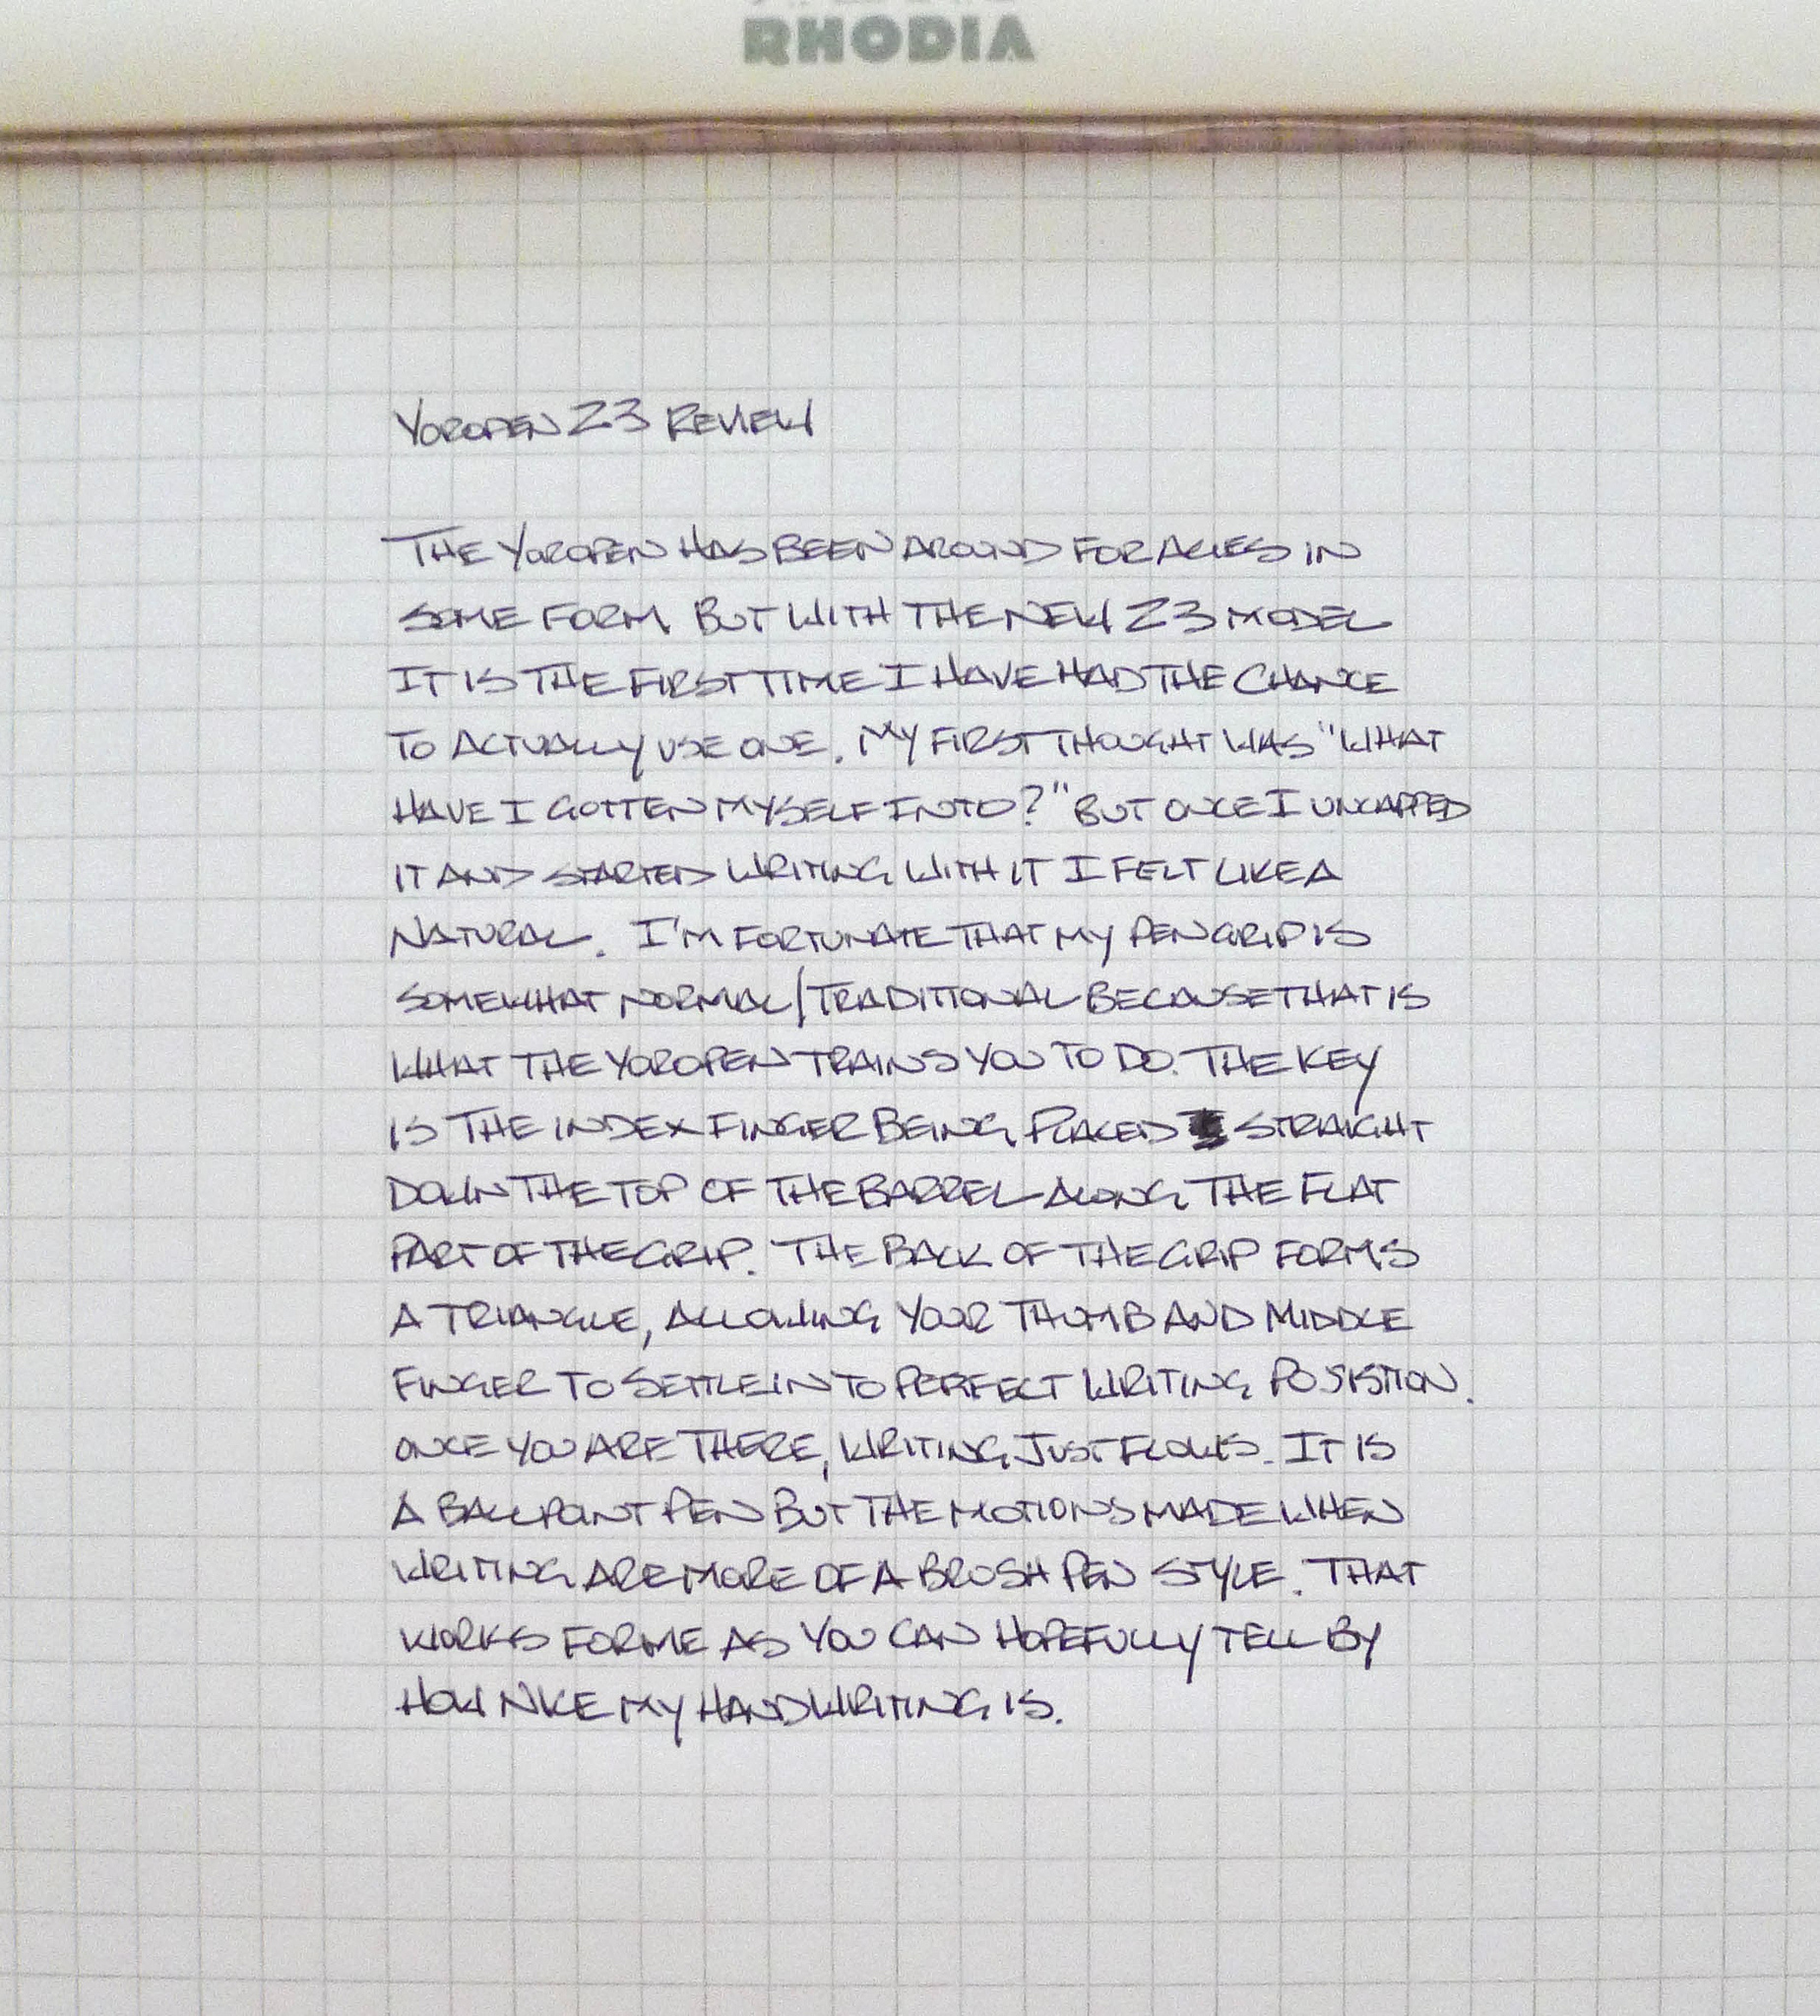 RHODIA
YOROPEN Z3 REVIEW
THE YOROPEN HAS BEEN AROUND FOR AGES IN
SOME FORM, BUT WITH THE NEW Z3 MODEL
IT IS THE FIRST TIME I HAVE HAD THE CHANCE
TO ACTUALLY USE ONE. MY FIRST THOUGHT WAS "WHAT
HAVE I GOTTEN MYSELF INTO?" BUT ONCE I UNCAPPED
IT AND STARTED WRITING WITH IT I FELT LIKE A
NATURAL. I'M FORTUNATE THAT MY PEN GRIP IS
SOMEWHAT NORMAL/TRADITIONAL BECAUSE THAT IS
WHAT THE YOROPEN TRAINS YOU TO DO. THE KEY
IS THE INDEX FINGER BEING PLACED STRAIGHT
DOWN THE TOP OF THE BARREL ALONG THE FLAT
PART OF THE GRIP. THE BACK OF THE GRIP FORMS
A TRIANGLE, ALLOWING YOUR THUMB AND MIDDLE
FINGER TO SETTLE IN TO PERFECT WRITING POSISTION.
ONCE YOU ARE THERE, WRITING JUST FLOWS. IT IS
A BALLPOINT PEN BUT THE MOTIONS MADE WHEN
WRITING ARE MORE OF A BRUSH PEN STYLE. THAT
WORKS FOR ME AS YOU CAN HOPEFULLY TELL BY
HOW NICE MY HANDWRITING IS.